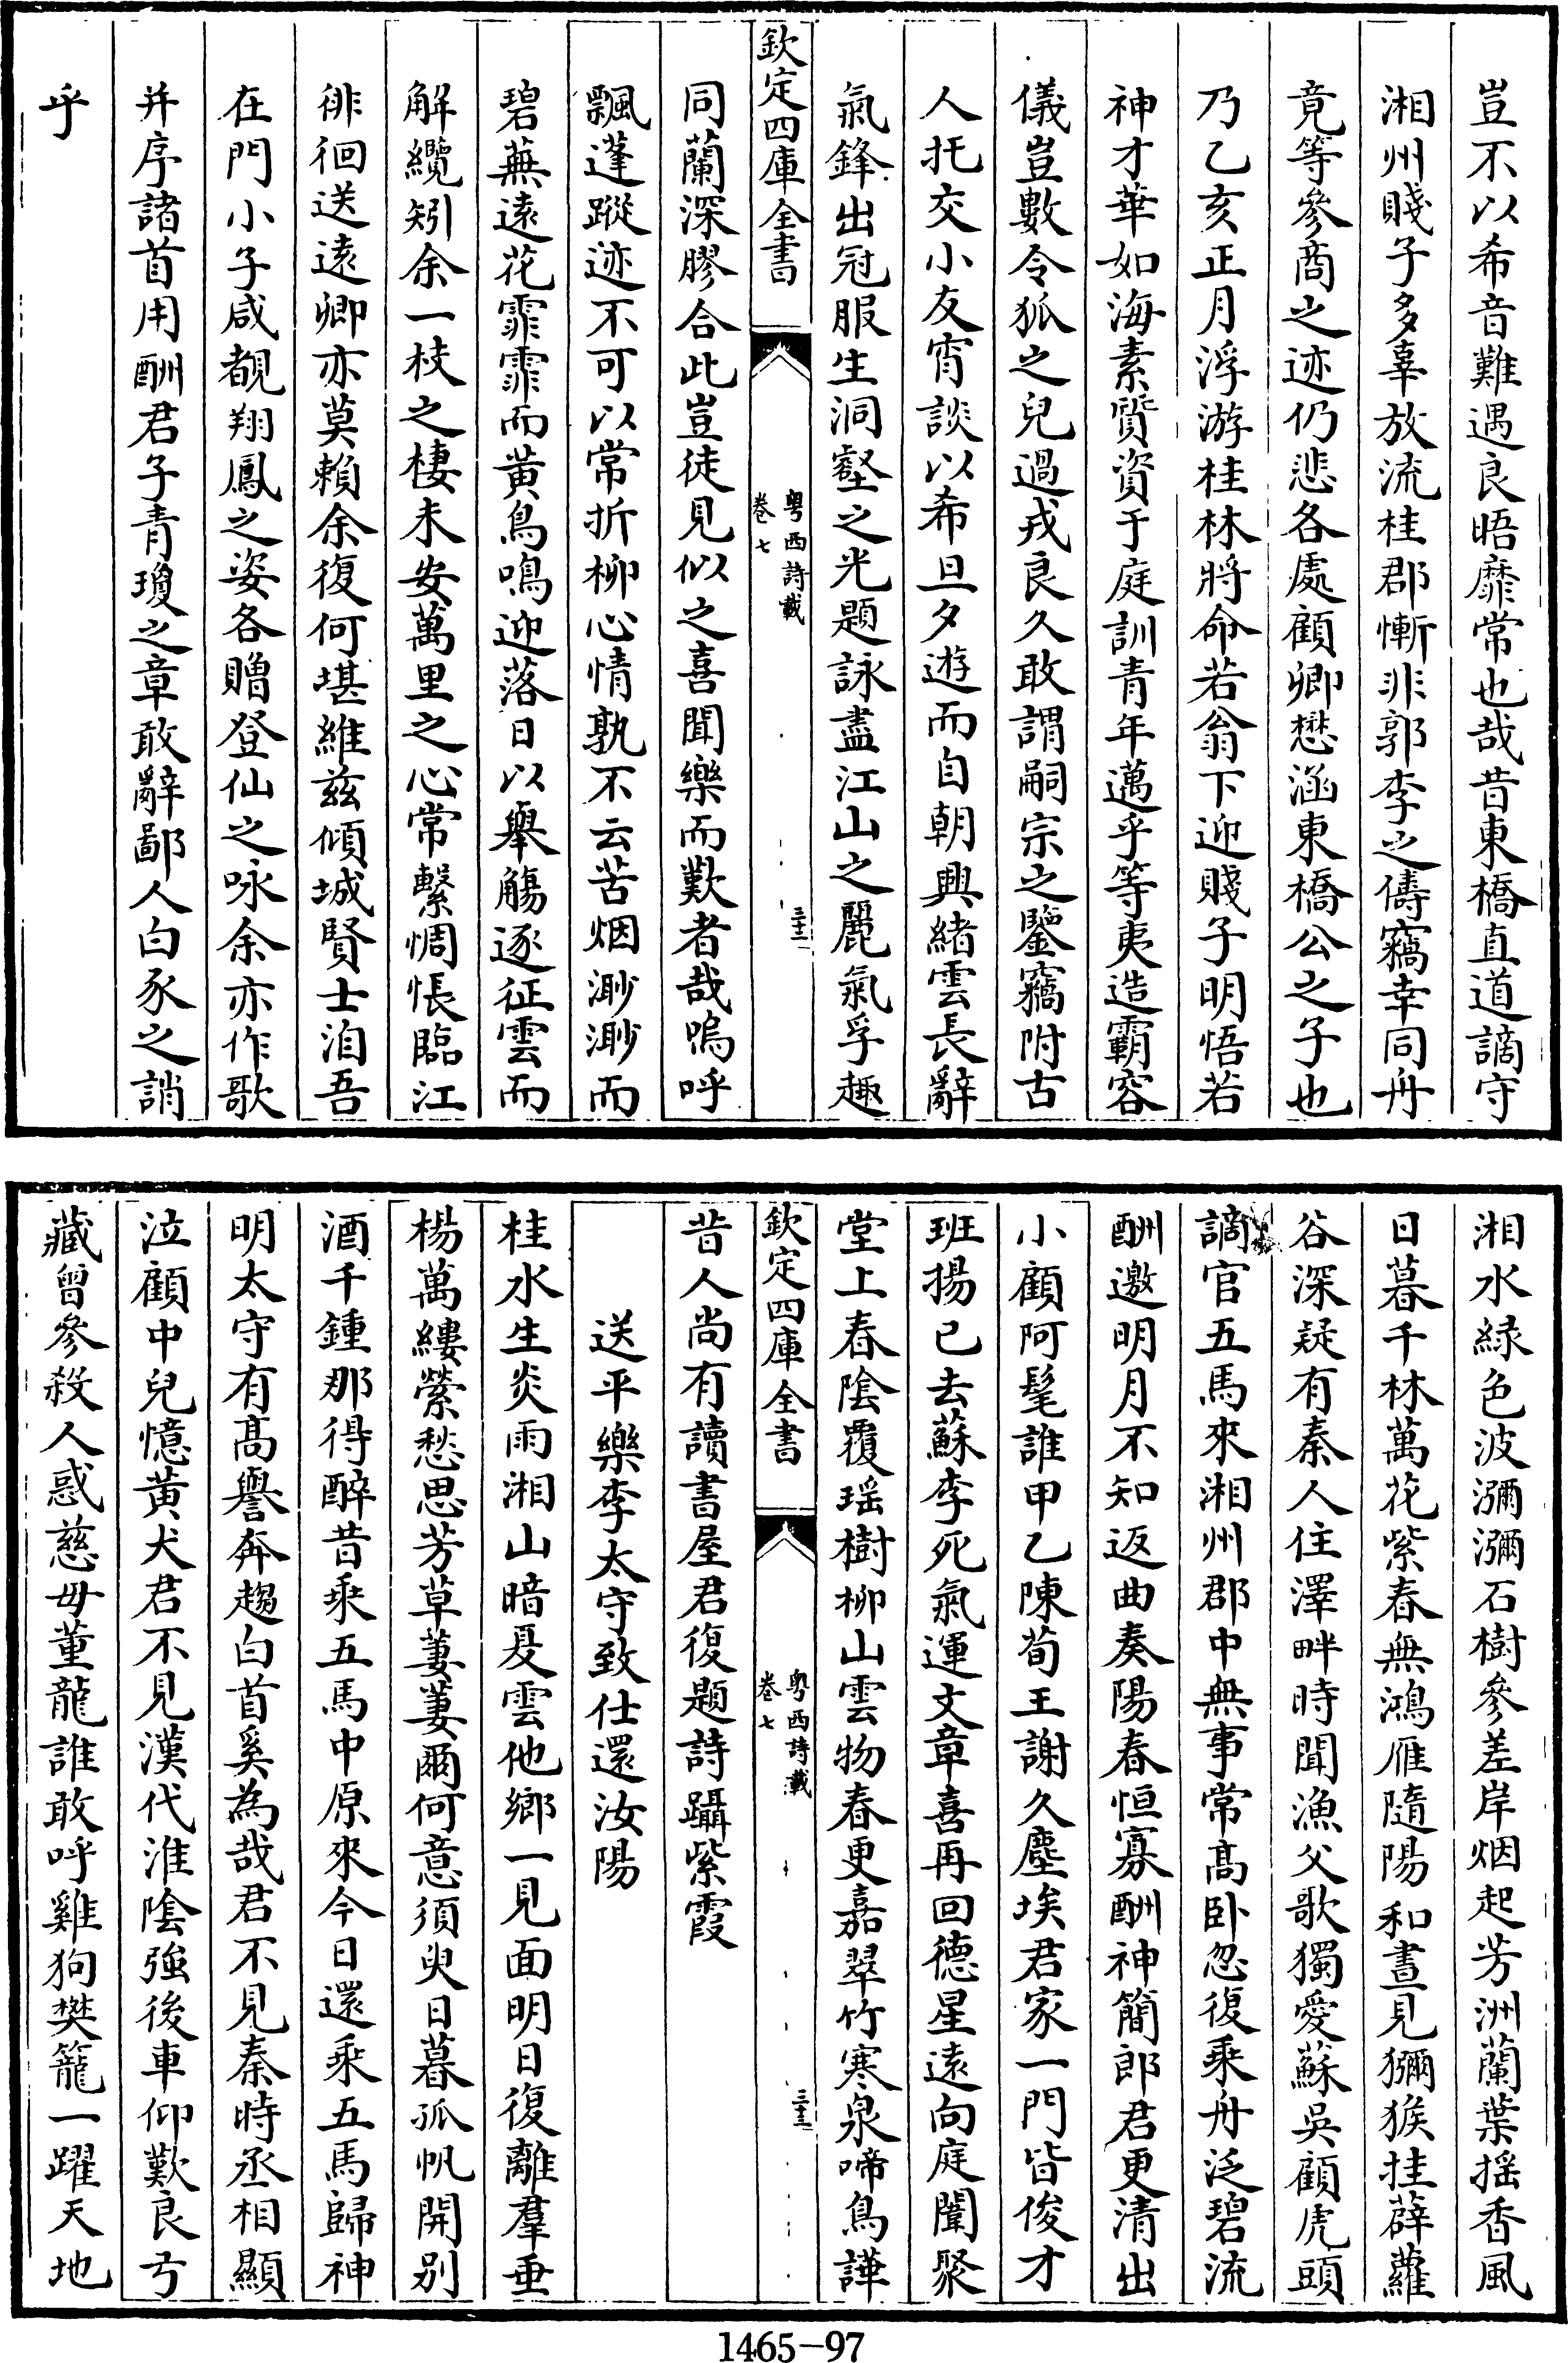 豈不以希音難遇良晤靡常也哉昔東橋直道謫守
湘州賤子多辜放流桂郡慚非郭李之儔竊幸同舟
竟等參商之迹仍悲各處顧卿懋涵東橋公之子也
乃乙亥正月浮游桂林將命若翁下迎賤子明悟若
神才華如海素質資于庭訓青年邁乎等夷造霸容
儀豈數令狐之兒過戎良久敢謂嗣宗之鑒竊附古
人托交小友宵談以希旦夕遊而自朝興緒雲長辭
氣鋒出冠服生洞壑之光題詠盡江山之麗氣孚趣
欽定四庫全書
粵西詩載
卷七
三十二
同蘭深膠合此豈徒見似之喜聞樂而歎者哉嗚呼
飄蓬蹤迹不可以常折柳心情孰不云苦烟渺渺而
碧蕪遠花霏霏而黃鳥鳴迎落日以舉觴逐征雲而
解纜矧余一枝之棲未安萬里之心常繫惆悵臨江
徘徊送遠卿亦莫賴余復何堪維兹傾城賢士洎吾
在門小子咸覩翔鳳之姿各贈登仙之咏余亦作歌
并序諸首用酬君子青瓊之章敢辭鄙人白豕之誚
乎
湘水緑色波瀰瀰石樹參差岸烟起芳洲蘭葉揺香風
日暮千林萬花紫春無鴻雁隨陽和晝見獼猴挂薜蘿
谷深疑有秦人住澤畔時聞漁父歌獨愛蘇吳顧虎頭
謫官五馬來湘州郡中無事常髙卧忽復乘舟泛碧流
酬邀明月不知返曲奏陽春恒寡酬神簡郎君更清出
小顧阿髦誰甲乙陳荀王謝久塵埃君家一門皆俊才
班揚已去蘇李死氣運文章喜再回德星遠向庭闈聚
堂上春陰覆瑶樹柳山雲物春更嘉翠竹寒泉啼鳥譁
欽定四庫全書
粵西詩載
卷七
三十三
昔人尚有讀書屋君復題詩躡紫霞
送平樂李太守致仕還汝陽
桂水生炎雨湘山暗夏雲他鄉一見面明日復離羣垂
楊萬縷縈愁思芳草萋萋爾何意須臾日暮孤帆開别
酒千鍾那得醉昔乘五馬中原來今日還乘五馬歸神
明太守有髙譽奔趨白首奚為哉君不見秦時丞相顯
泣顧中兒憶黄犬君不見漢代淮陰強後車仰歎良弓
藏曾參殺人惑慈母董龍誰敢呼雞狗樊籠一躍天地
1465-97